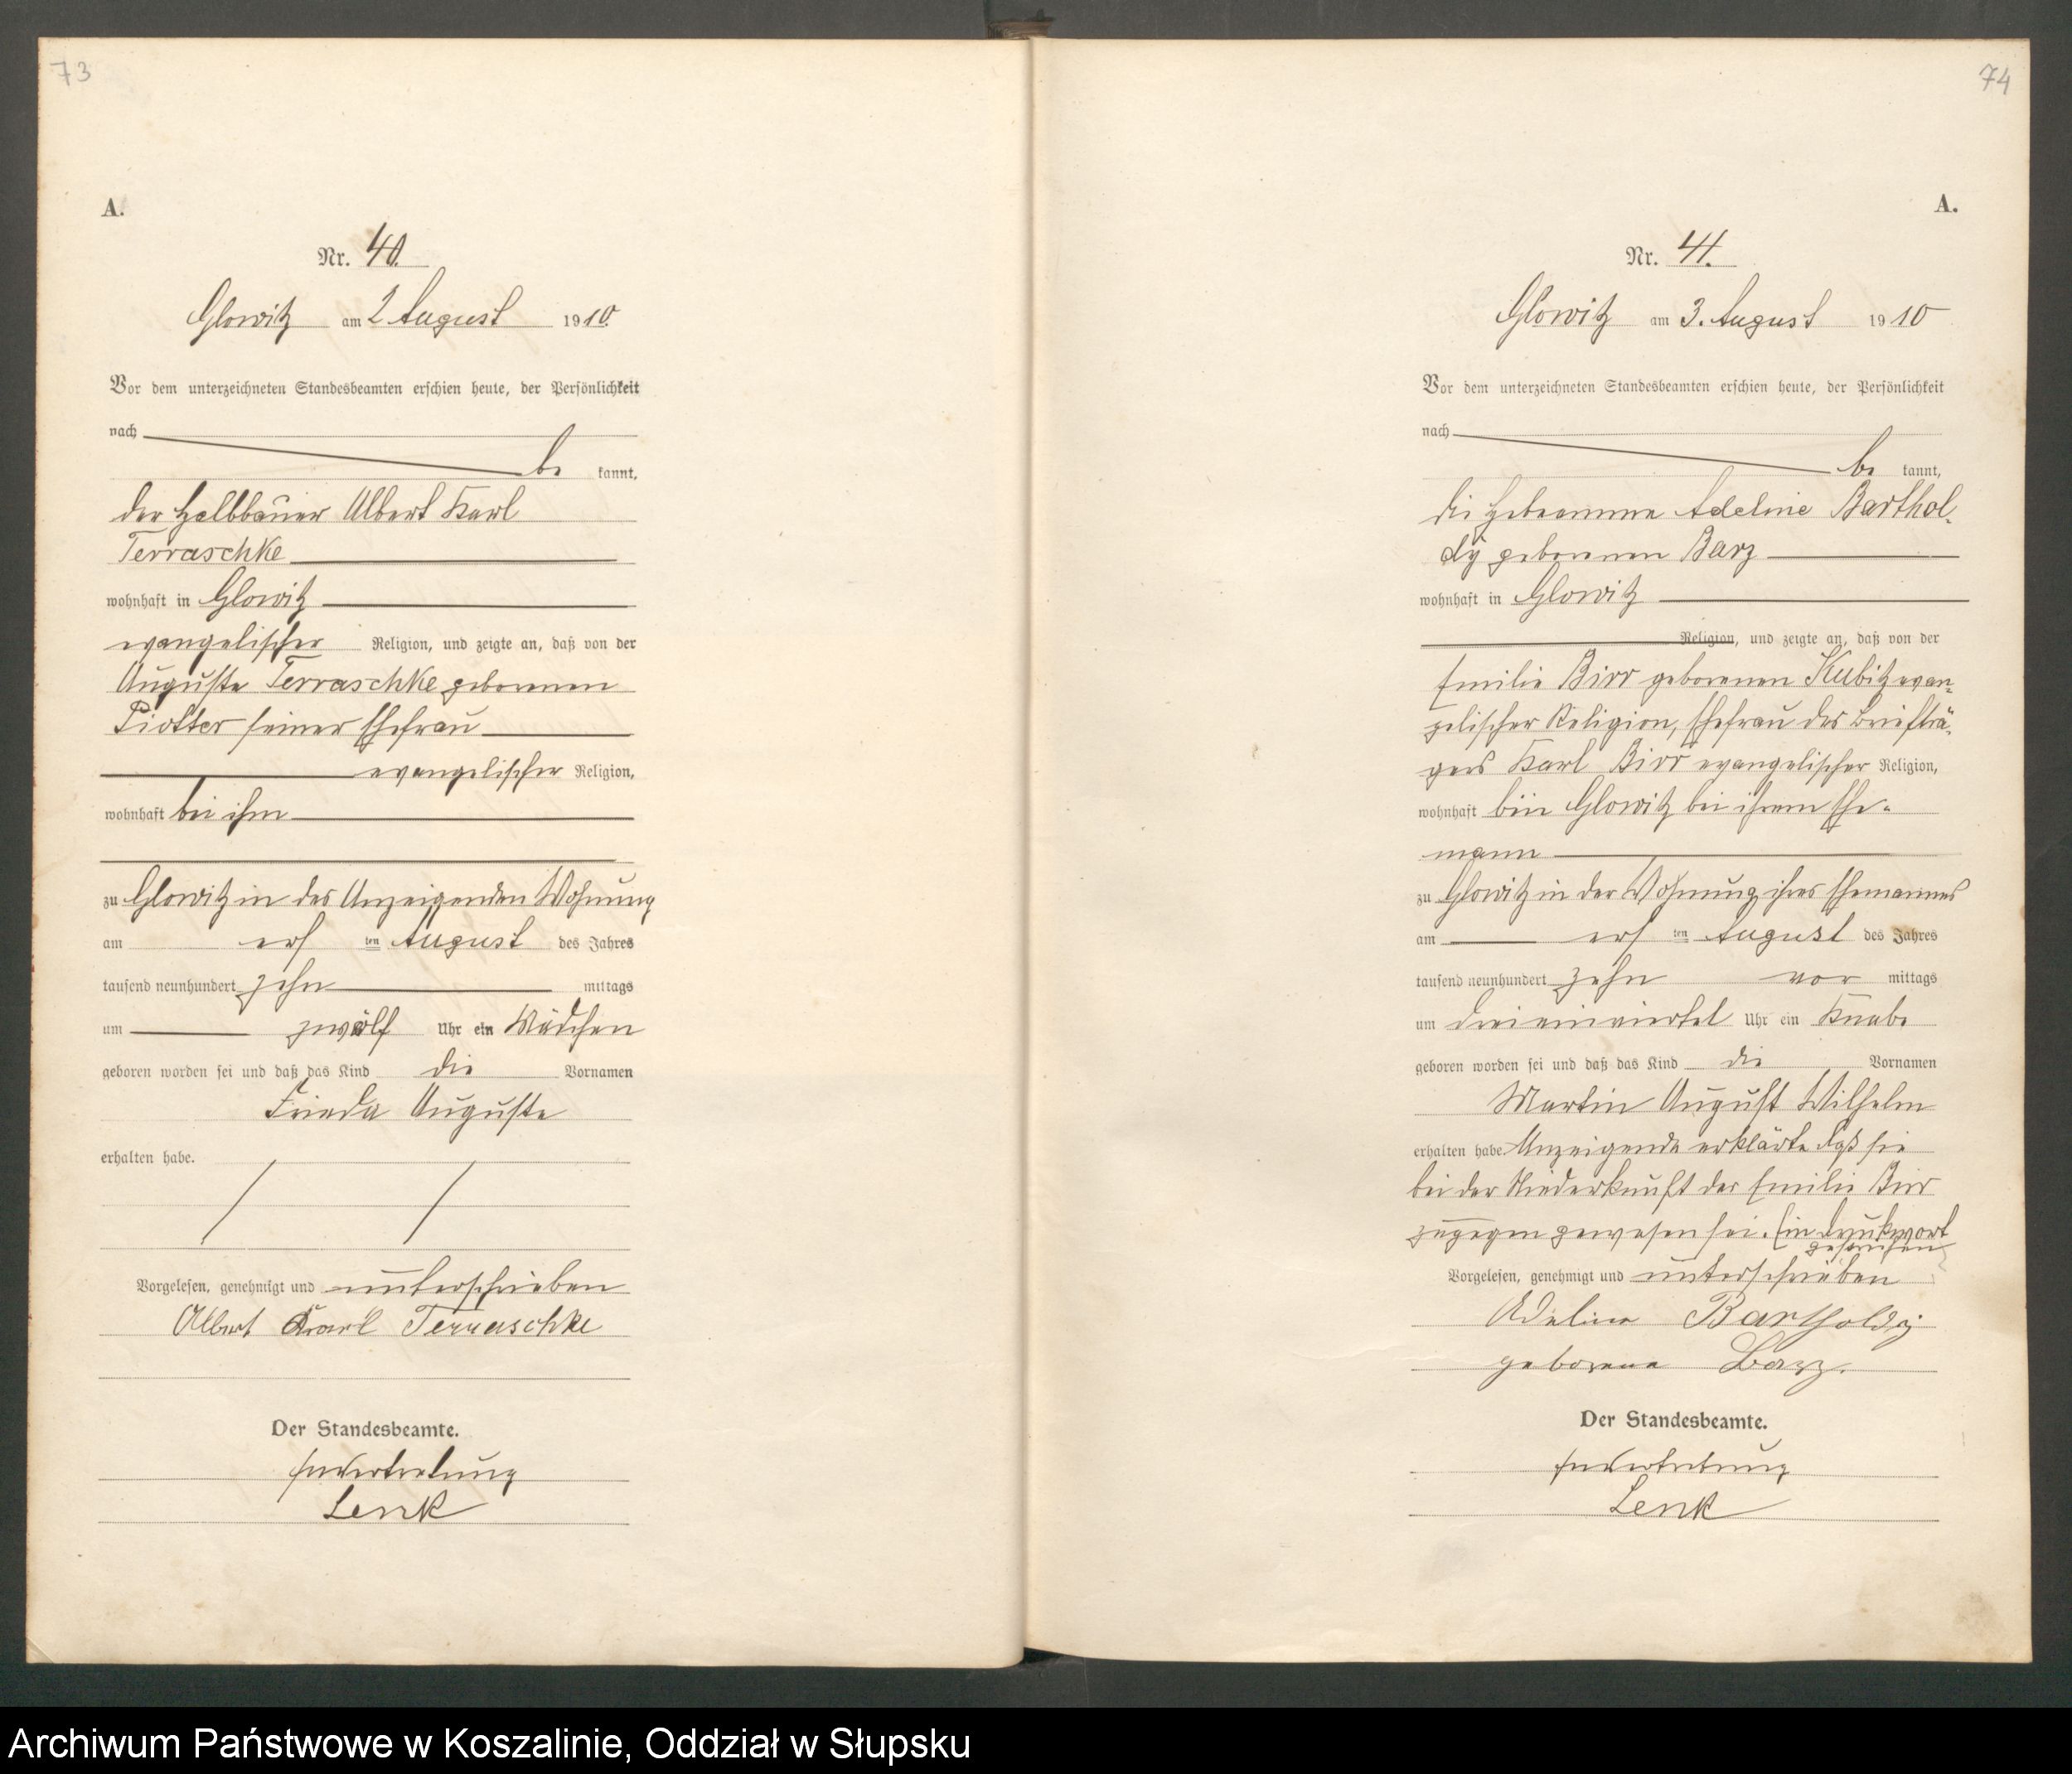 73
A.
Nr. 40.
Glowitz am 2 August 1910.
Vor dem unterzeichneten Standesbeamten erschien heute, der Persönlichkeit
nach
be kannt,
der Halbbauer Albert Karl
Terraschke
wohnhaft in Glowitz
evangelischer Religion, und zeigte an, daß von der
Auguste Terraschke geborenen
Piotter seiner Ehefrau
evangelischer Religion,
wohnhaft bei ihm
zu Glowitz in des Anzeigenden Wohnung
am ers ten August des Jahres
tausend neunhundert zehn mittags
um zwölf Uhr ein Mädchen
geboren worden sei und daß das Kind die Vornamen
Frieda Auguste
erhalten habe.
Vorgelesen, genehmigt und unterschrieben
Albert Karl Terraschke
Der Standesbeamte.
In Vertretung
Lenk
74
A.
Nr. 41.
Glowitz am 3. August 1910
Vor dem unterzeichneten Standesbeamten erschien heute, der Persönlichkeit
nach
be kannt,
die Hebamme Adeline Barthol-
dy geborenen Barz
wohnhaft in Glowitz
Religion, und zeigte an, daß von der
Emilie Birr geborenen Kubitz evan-
gelischer Religion, Ehefrau des Briefträ-
gers Karl Birr evangelischer Religion,
wohnhaft Glowitz bei ihrem Ehe-
mann
zu Glowitz in der Wohnung ihres Ehemannes
am ers ten August des Jahres
tausend neunhundert zehn vor mittags
um drei einviertel Uhr ein Knabe
geboren worden sei und daß das Kind die Vornamen
Martin August Wilhelm
erhalten habe. Anzeigende erklärte daß sie
bei der Niederkunft der Emilie Birr
zugegen gewesen sei. Ein Druckwort
gestrichen
Vorgelesen, genehmigt und unterschrieben
Adeline Bartholdy
geborene Barz.
Der Standesbeamte.
In Vertretung
Lenk
Archiwum Państwowe w Koszalinie, Oddział w Słupsku